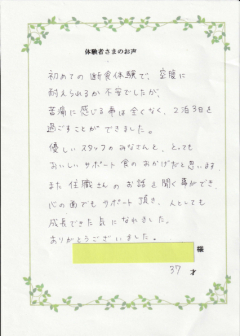 体験者さまのお声
初めての断食体験で、空腹に
耐えられるか不安でしたが、
苦痛に感じる事は全くなく、2泊3日を
過ごすことができました。
優しいスタッフのみなさんと、とっても
おいしいサポート食のおかげだと思います。
また住職さんのお話を聞く事ができ、
心の面でもサポート頂き、人としても
成長できた気になれました。
ありがとうございました。
様
37 才